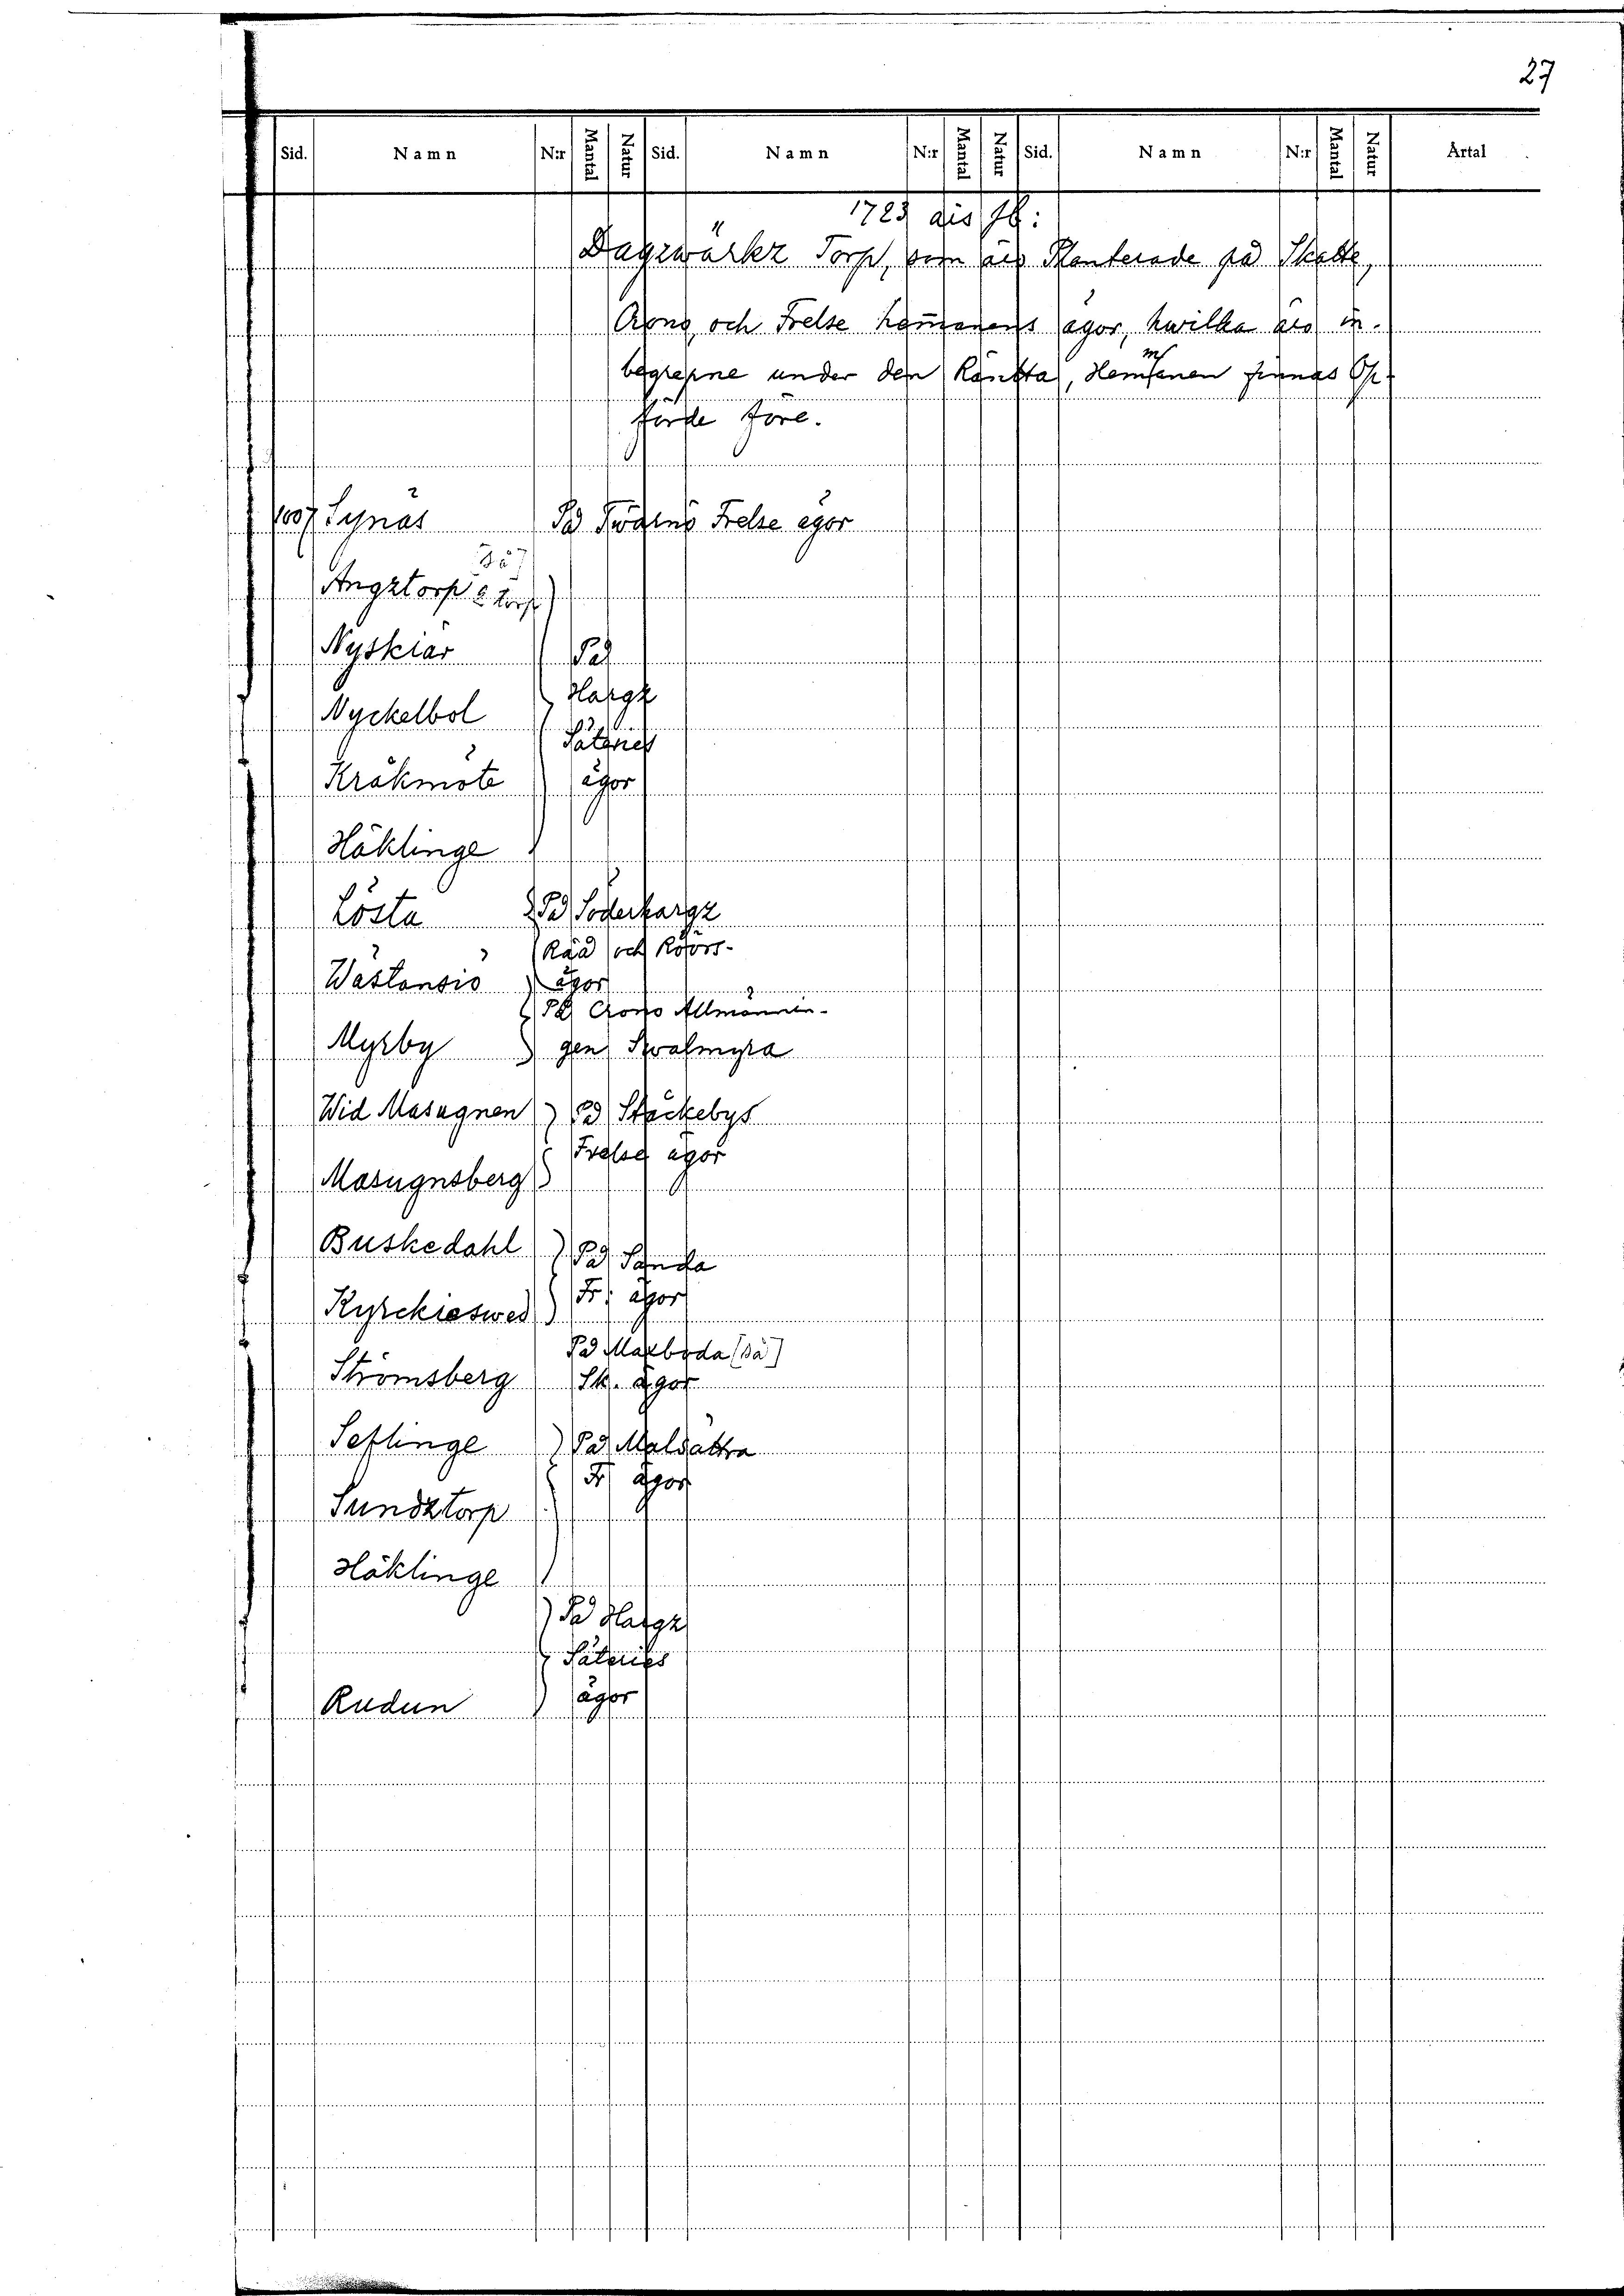 27
Sid. Namn N:r Mantal Natur Sid. Namn N:r Mantal Natur Sid. Namn N:r Mantal Natur Årtal
1723 års Jb:
Dagzwärkz Torp, som äro Planterade på Skatte,
Crono och Frelse hem̄anens ägor, hwilka äro in-
begrepne under den Räntta, Hemmanen finnas Op-
förde före.
1007 Synäs På Twärnö Frelse ägor
[så]
Angztorp 2 torp
Nyskiär På
Hargz
Nyckelbol
Säteries
Kråkmöte ägor
Häklinge
Lösta På Söderhargz
Råå och Röörs-
Wästansiö ägor
På Crono Allmännin-
Myrby gen Swalmyra
Wid Masugnen På Stäckebys
Frelse ägor
Masugnsberg
Buskedahl På Sanda
Fr: ägor
Kyrckieswed
På Maxboda [så]
Strömsberg Sk. ägor
Seflinge På Malsättra
Fr ägor
Sundztorp
Häklinge
På Hargz
Säteries
Rudun ägor